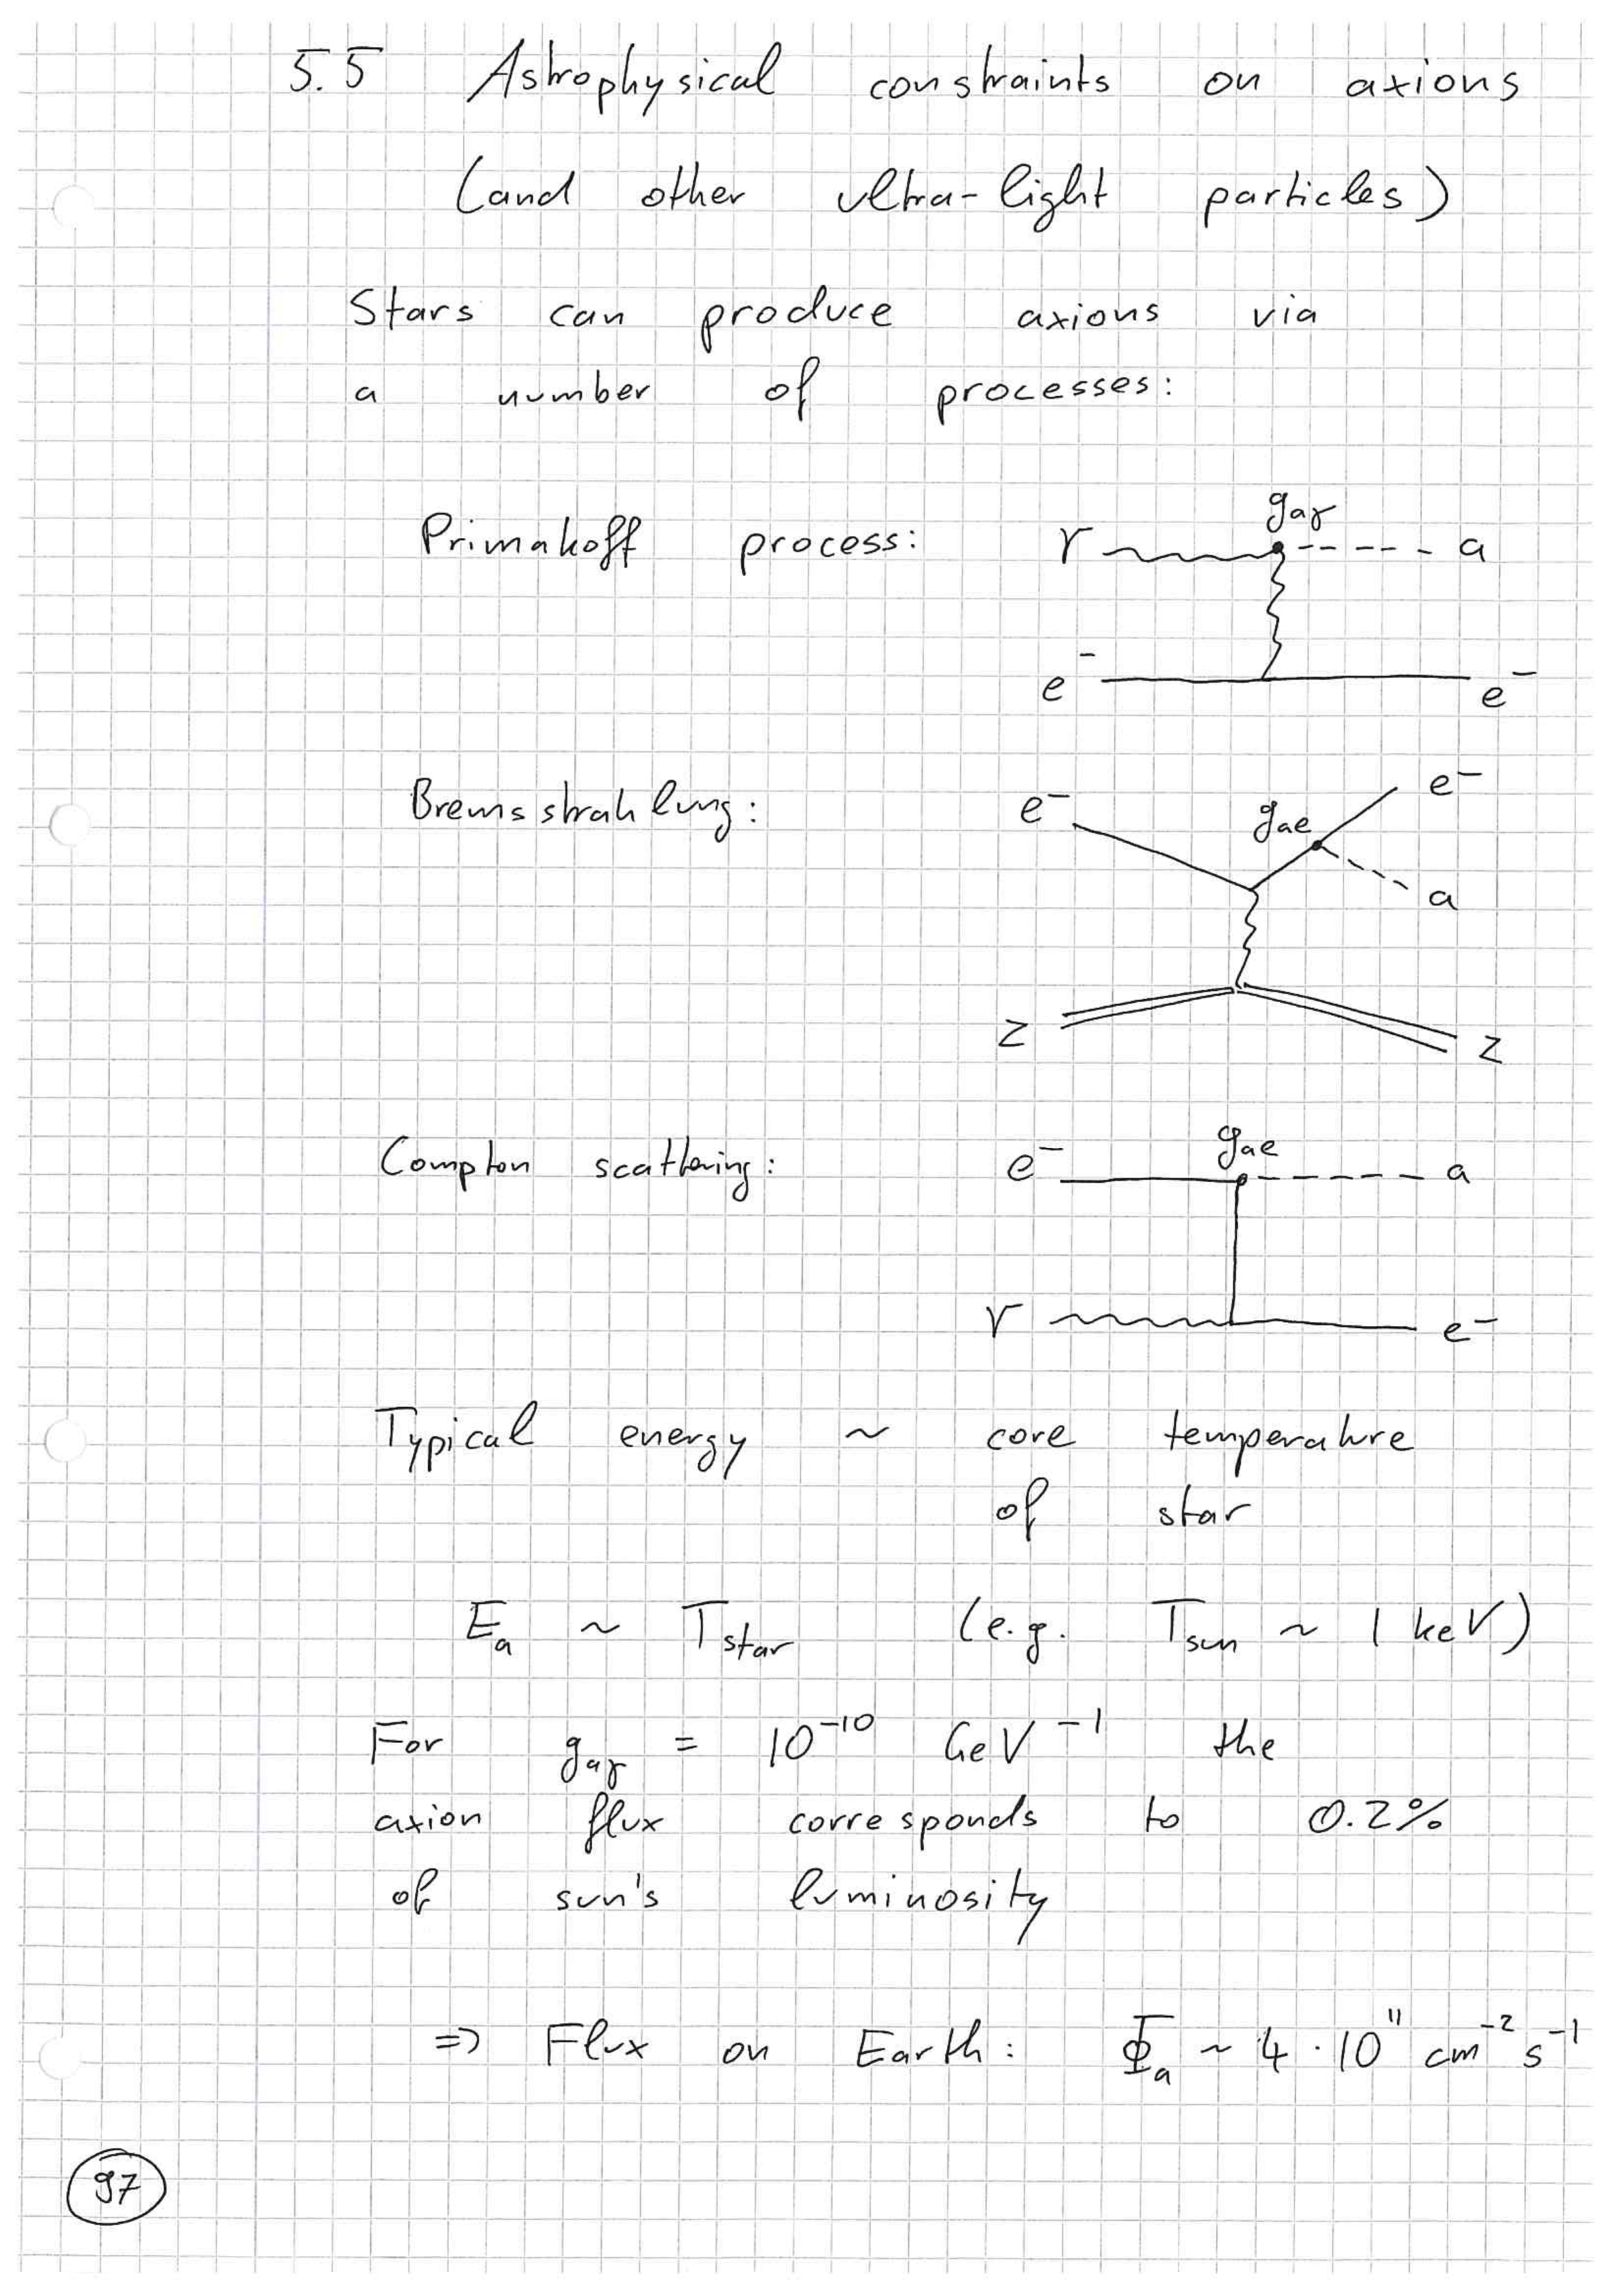 5.5 Astrophysical constraints on axions
(and other ultra-light particles)
Stars can produce axions via
a number of processes:
Primakoff process: γ g_aγ a
e⁻ e⁻
Bremsstrahlung: e⁻ g_ae e⁻
a
Z Z
Compton scattering: e⁻ g_ae a
γ e⁻
Typical energy ~ core temperature
of star
E_a ~ T_star (e.g. T_sun ~ 1 keV)
For g_aγ = 10⁻¹⁰ GeV⁻¹ the
axion flux corresponds to 0.2%
of sun's luminosity
⇒ Flux on Earth: Φ_a ~ 4 · 10¹¹ cm⁻² s⁻¹
97